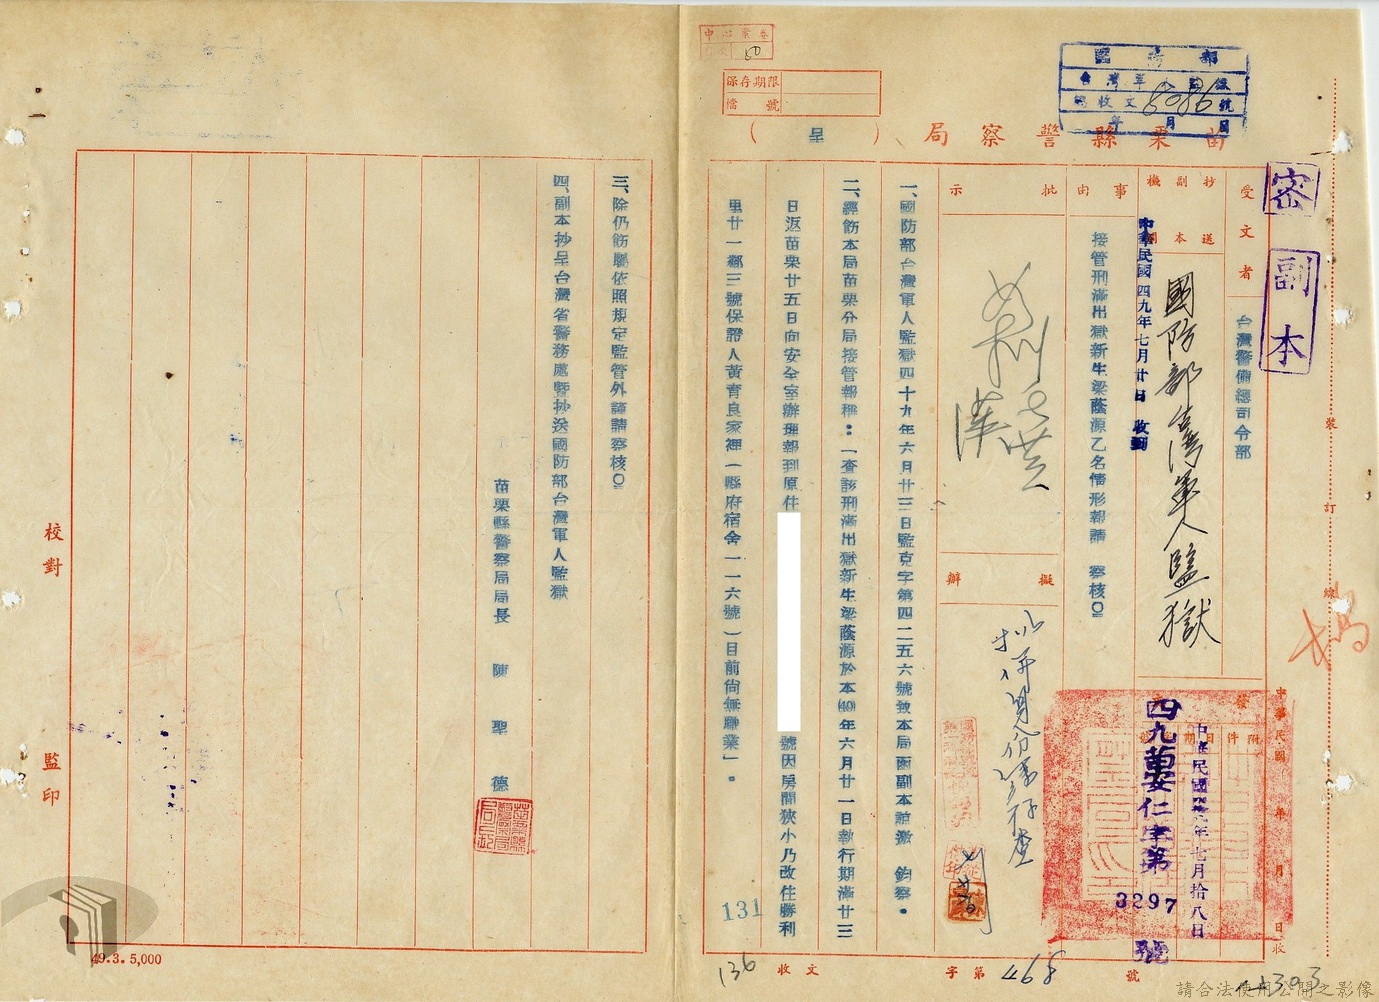 密
副本
國防部
6086
苗栗縣警察局（呈）
保存期限
檔號
受文者
台灣警備總司令部
抄送副本機關
國防部台灣軍人監獄
中華民國四九年七月廿日收到
事由
接管刑滿出獄新生梁蔭源乙名情形報請　察核〇
批示
擬辦
發文
附件
日期
中華民國四九年七月拾八日
四九苗安仁字第3297號
一、國防部台灣軍人監獄四十九年六月廿三日監克字第四二五六號致本局函副本諒邀　鈞察。
二、經飭本局苗栗分局接管報稱：「查該刑滿出獄新生梁蔭源於本(49)年六月廿一日執行期滿廿三
日返苗栗廿五日向安全室辦理報到原住
號因房間狹小乃改住勝利
里廿一鄰三號保證人黃育良家裡（縣府宿舍一一六號）目前尚無職業」。
三、除仍飭屬依照規定監管外謹請察核〇
四、副本抄呈台灣省警務處暨抄送國防部台灣軍人監獄
苗栗縣警察局局長　陳　聖　德
裝
訂
線
校對
監印
131
136
收文
字第468號
49.3.5,000
請合法使用公開之影像